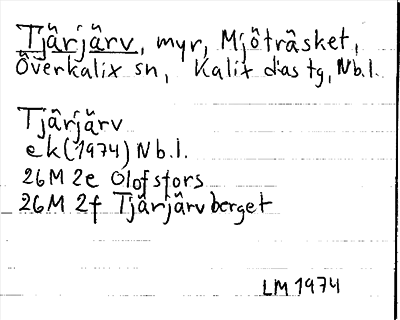 Tjärjärv, myr, Mjöträsket,
Överkalix sn, Kalix d:as tg, Nb.l.
Tjärjärv
ek (1974) Nb.l.
26M 2e Olofsfors
26M 2f Tjärjärvberget
LM 1974